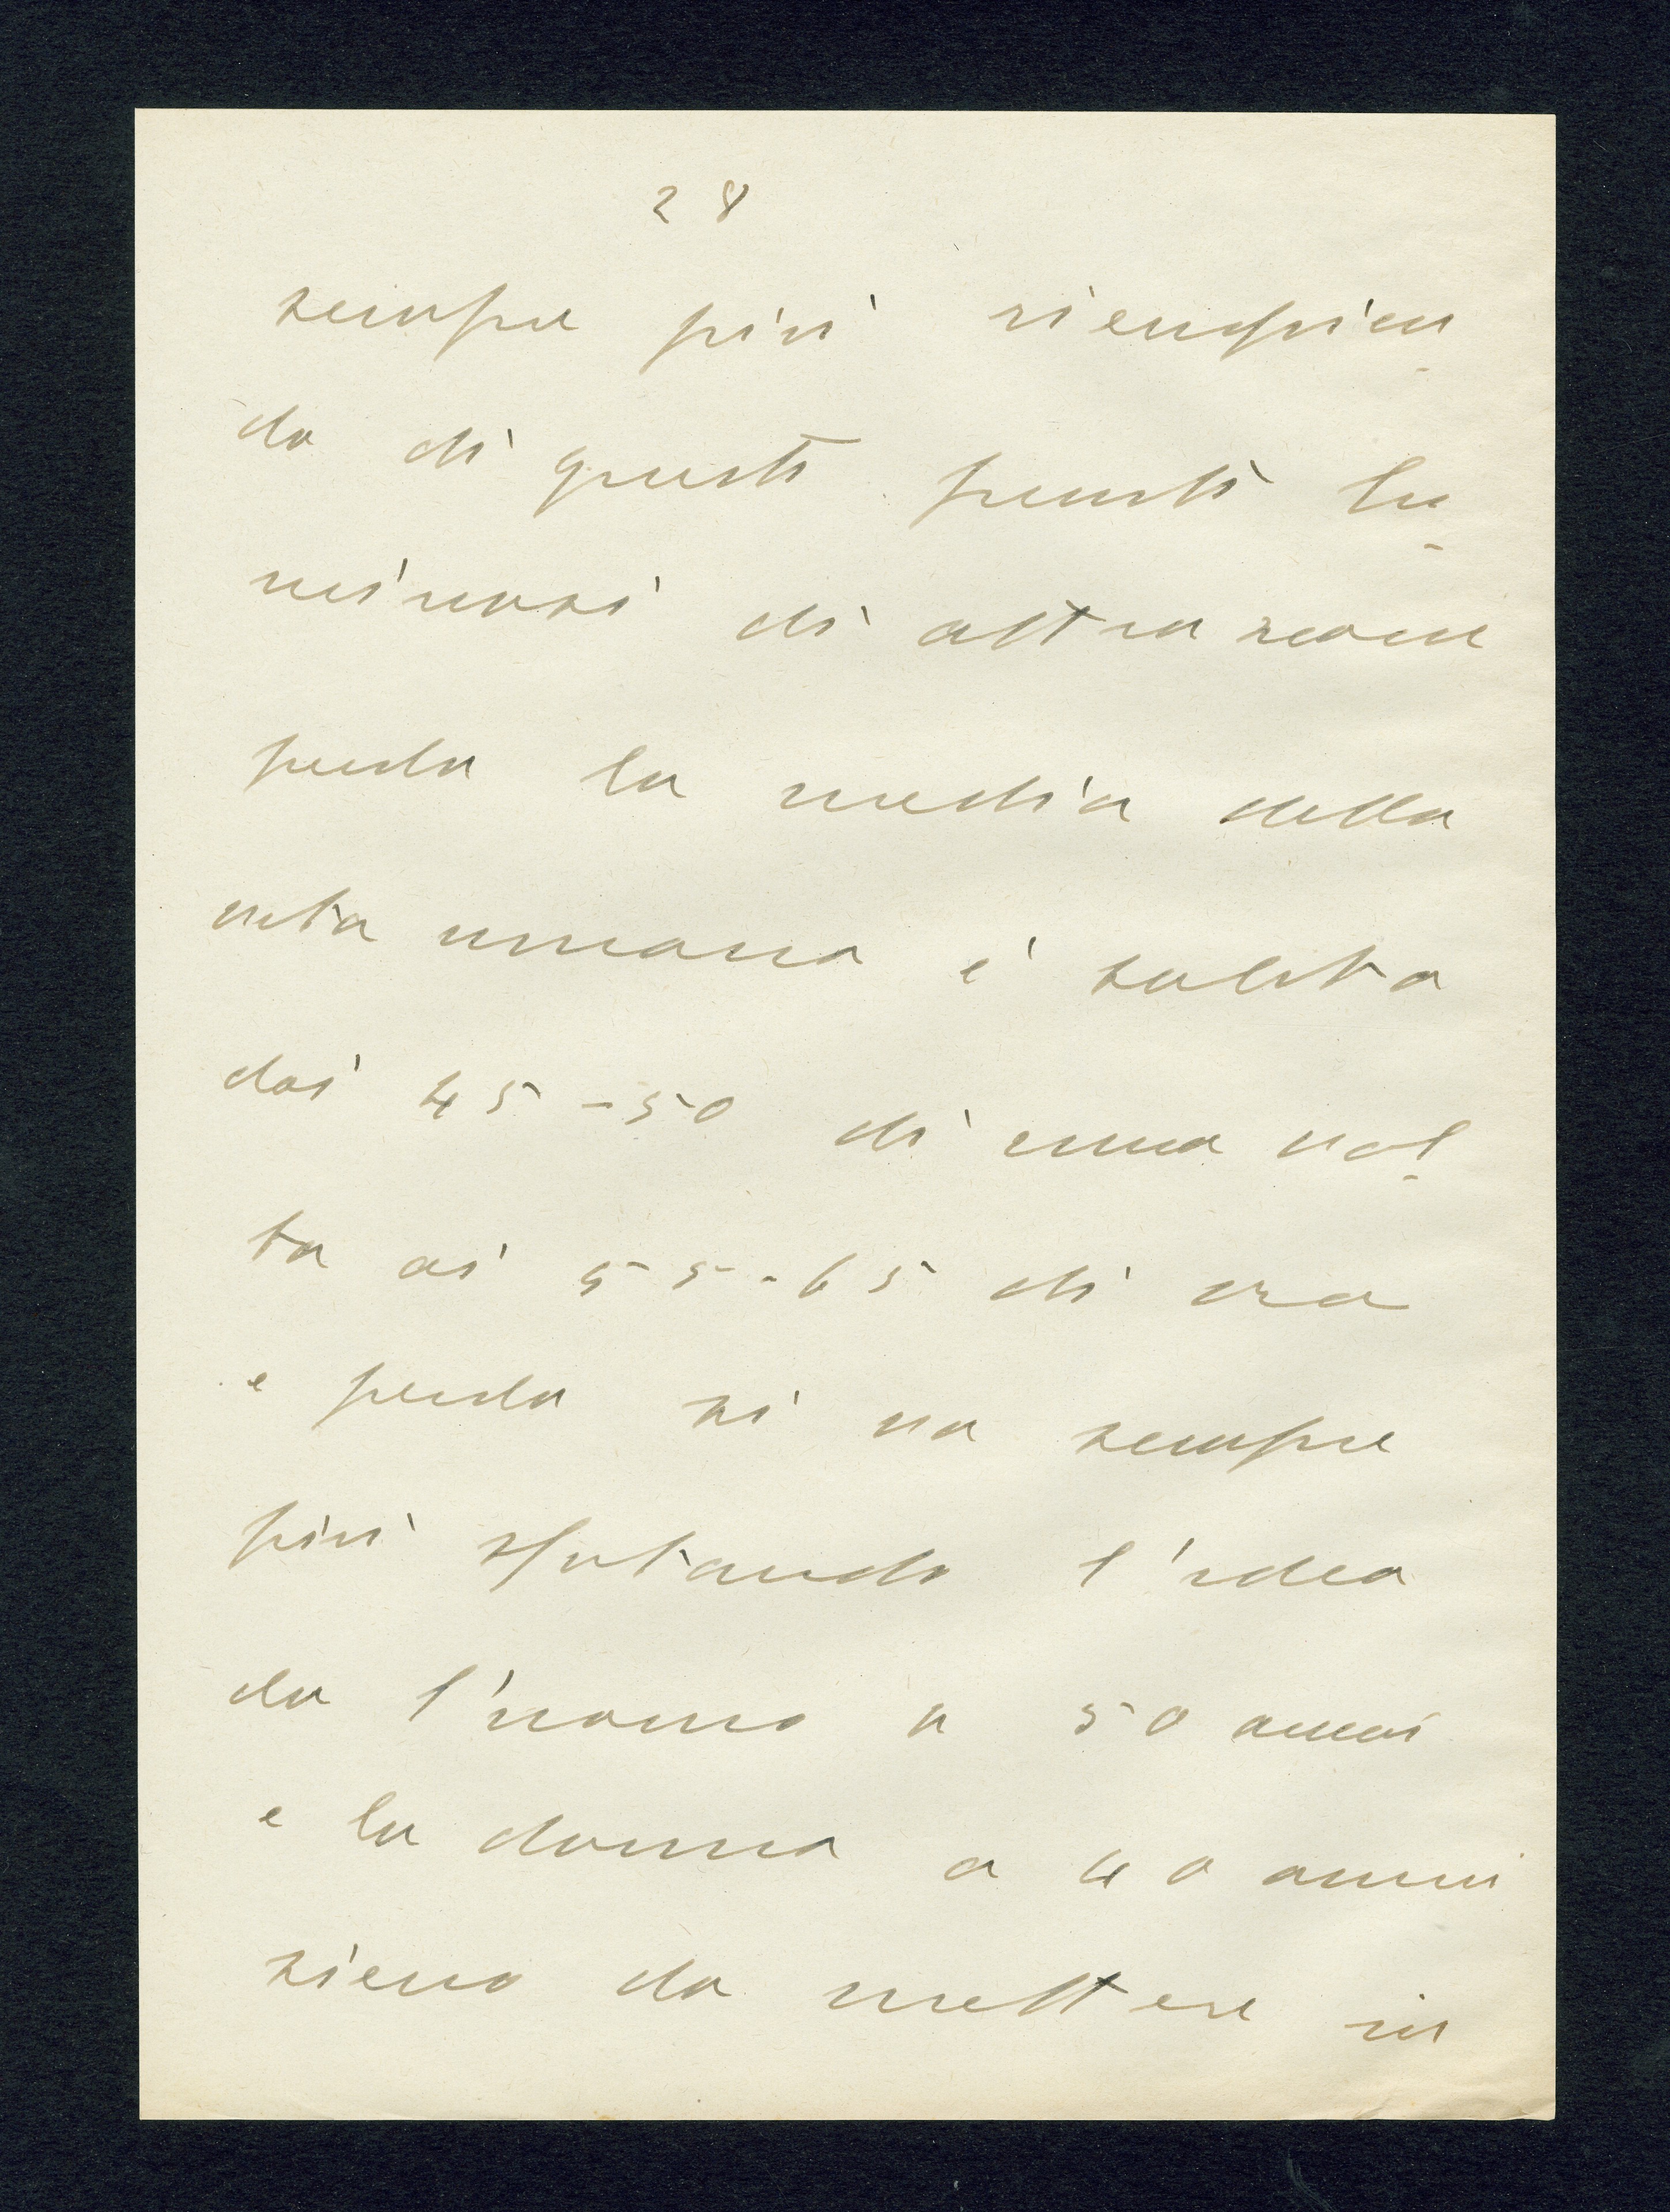 28
sempre più riempien
do di questi punti lu
minosi di attrazione
perché la media della
vita umana è salita
dai 45-50 di una vol
ta ai 55-65 di ora
e perché si va sempre
più sfatando l'idea
che l'uomo a 50 anni
e la donna a 40 anni
siano da mettere in